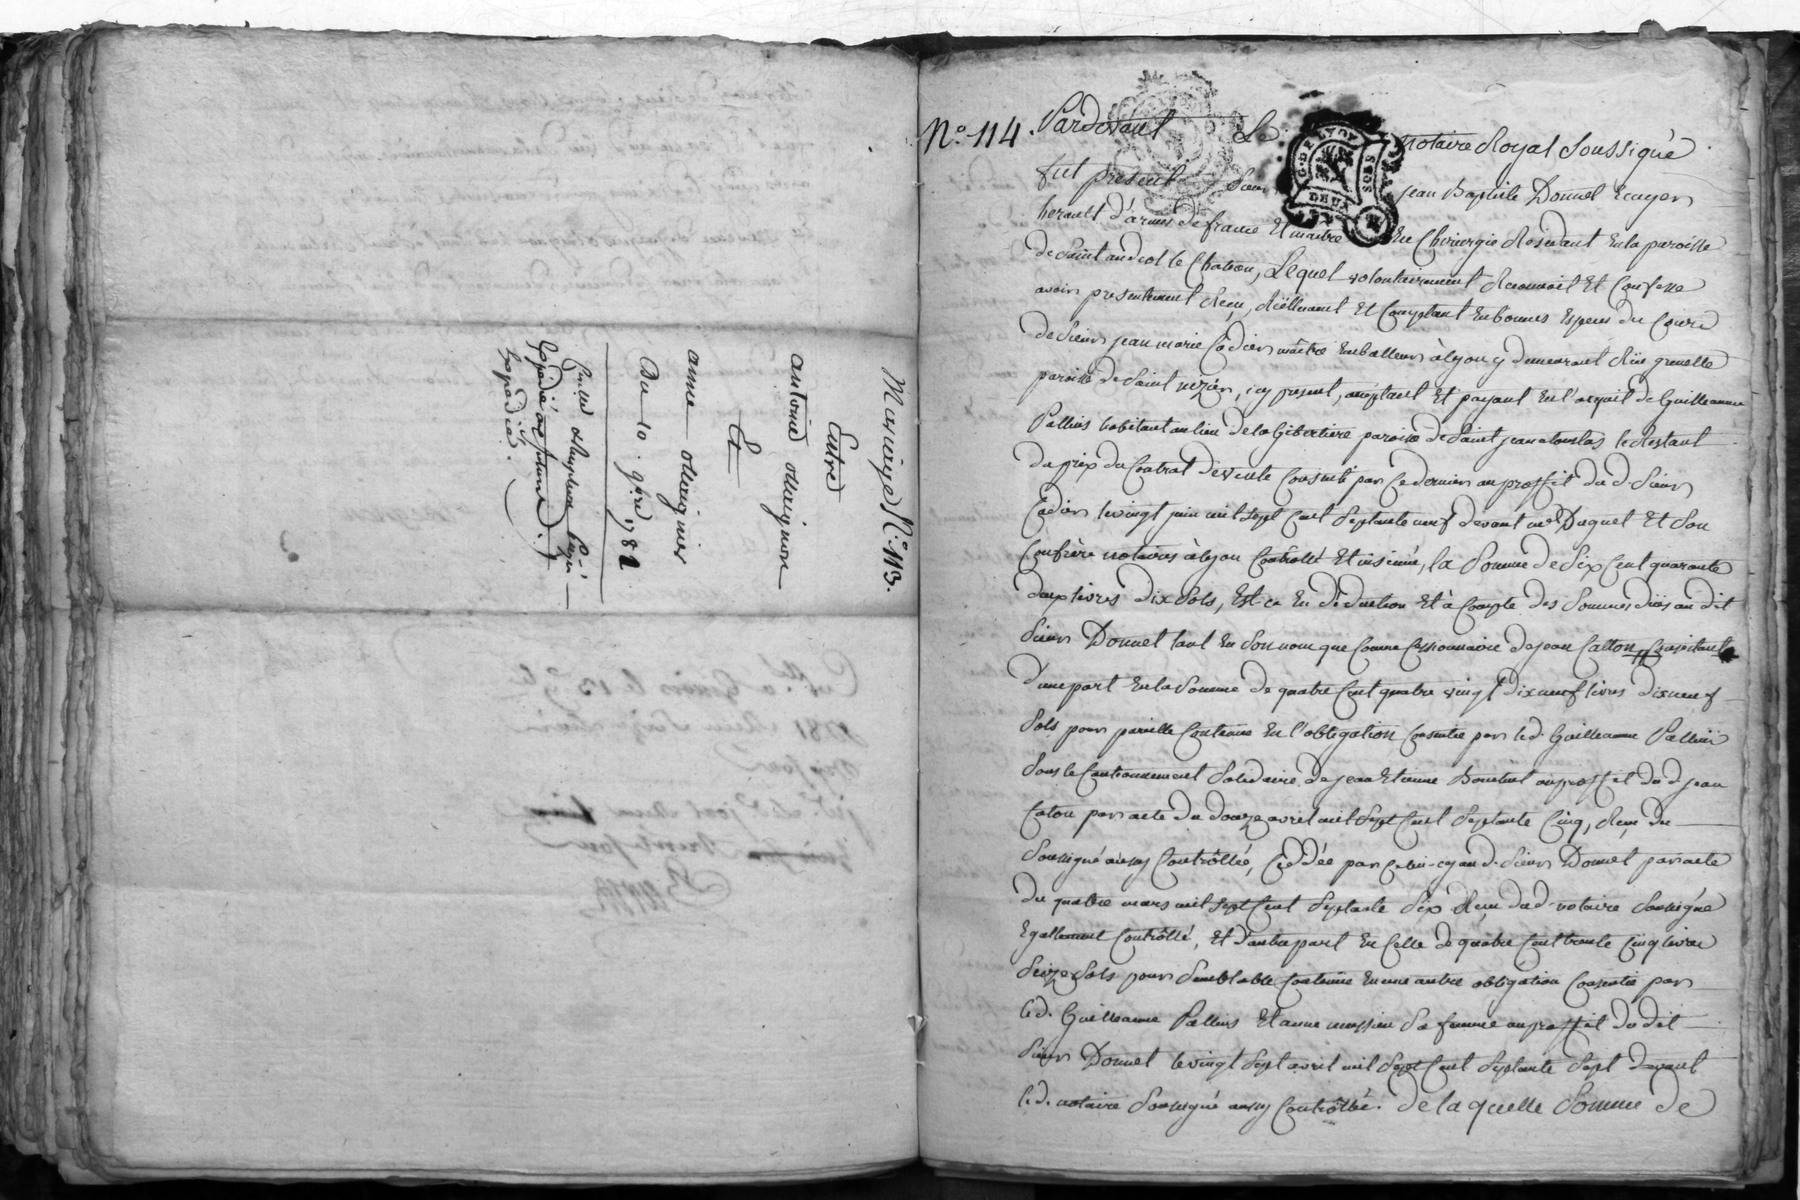 Mariage N.° 113.
Entre
antoine
Et
anne
Du 10. 9.bre 1781
Expedié
N.° 114. Pardevant Le notaire Royal soussigné
fut present Sieur jean Baptiste Donnet Ecuyer
herault d'armes de france Et maitre En Chirurgie Residant En la paroisse
de Saint andeol le Chateau, Lequel volontairement Reconnoit Et Confesse
avoir presentement Reçu, Réellement Et Comptant En bonnes Especes du Cours
de Sieur jean marie Cadier maître Emballeur à Lyon y demeurant Rüe grenette
paroisse de Saint nizier, icy present, acceptant Et payant En l'acquit de Guilleaume
Pallluis habitant au lieu de la Gibertiere paroisse de Saint jean a touslas le Restant
du prix du Contrat de vente Consenti par Ce dernier au proffit du d. Sieur
Cadier le vingt juin mil Sept Cent Septante neuf devant me Duguet Et Son
Confrère notaires à Lyon Contrôllé Et insinué, la Somme de Six Cent quarante
deux livres dix Sols, Est ce En déduction Et à Compte des Sommes düës au dit
Sieur Donnet tant En Son nom que Comme Cessionnaire de jean Catton, Consistant
d'une part En la Somme de quatre Cent quatre vingt dix neuf livres dix neuf
Sols pour pareille Contenue En l'obligation Consentie par le d. Guilleaume
Sous le Cautionnement Solidaire de jean Etienne au proffit du d. jean
Caton par acte du douze avril mil Sept Cent Septante Cinq, Reçu du
Soussigné aussy Contrôllé, Cédée par Celui-cy au d. Sieur Donnet par acte
du quatre mars mil Sept Cent Septante Six Reçu du d. notaire Soussigné
Egallement Contrôllé, Et d'autre part En Celle de quatre Cent trente Cinq livres
Seize Sols pour Semblable Contenue En une autre obligation Consentie par
le d. Guilleaume Et anne Sa femme au proffit du dit
Sieur Donnet le vingt Sept avril mil Sept Cent Septante Sept devant
le d. notaire Soussigné aussy Contrôllée. de la quelle Somme de
C. DE LYON
DEUX
SOLS